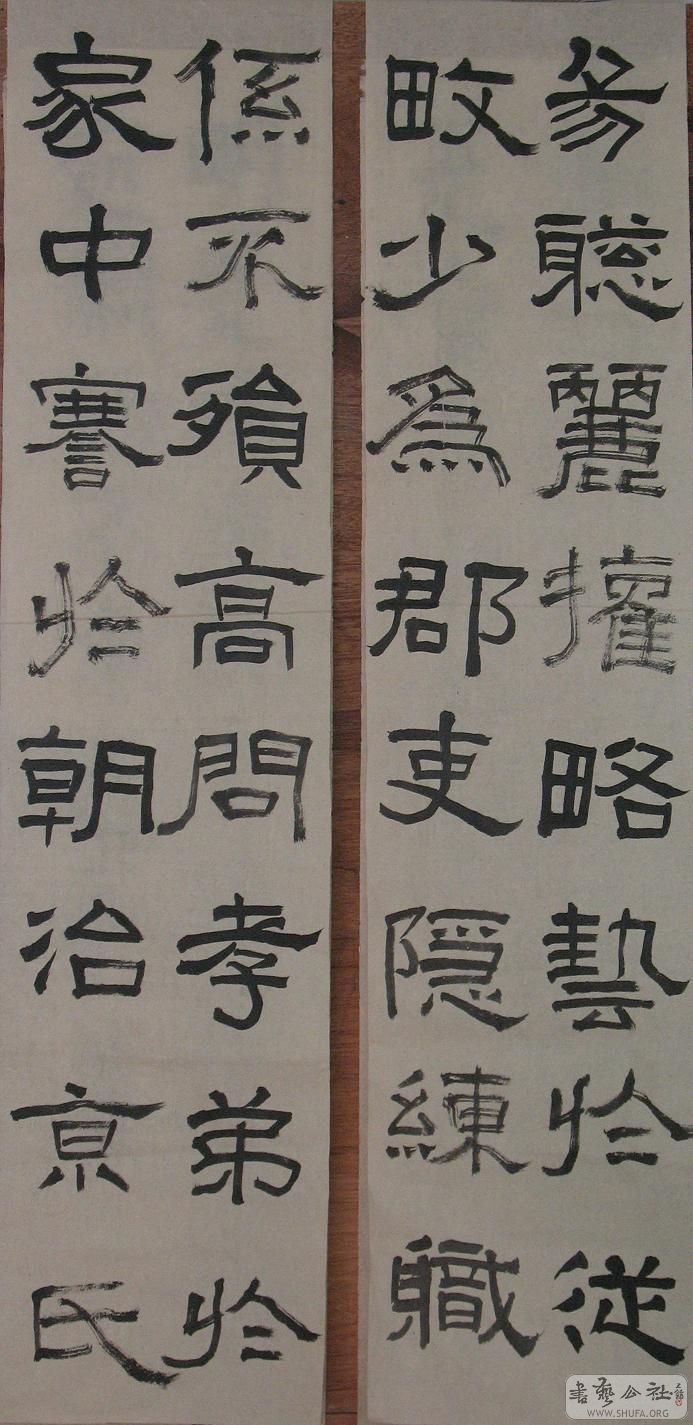 易聦麗攉略藝於從
畋少爲郡吏隱練職
係不殞高問孝弟於
家中謇於朝治亰氏
書藝公社
WWW.SHUFA.ORG